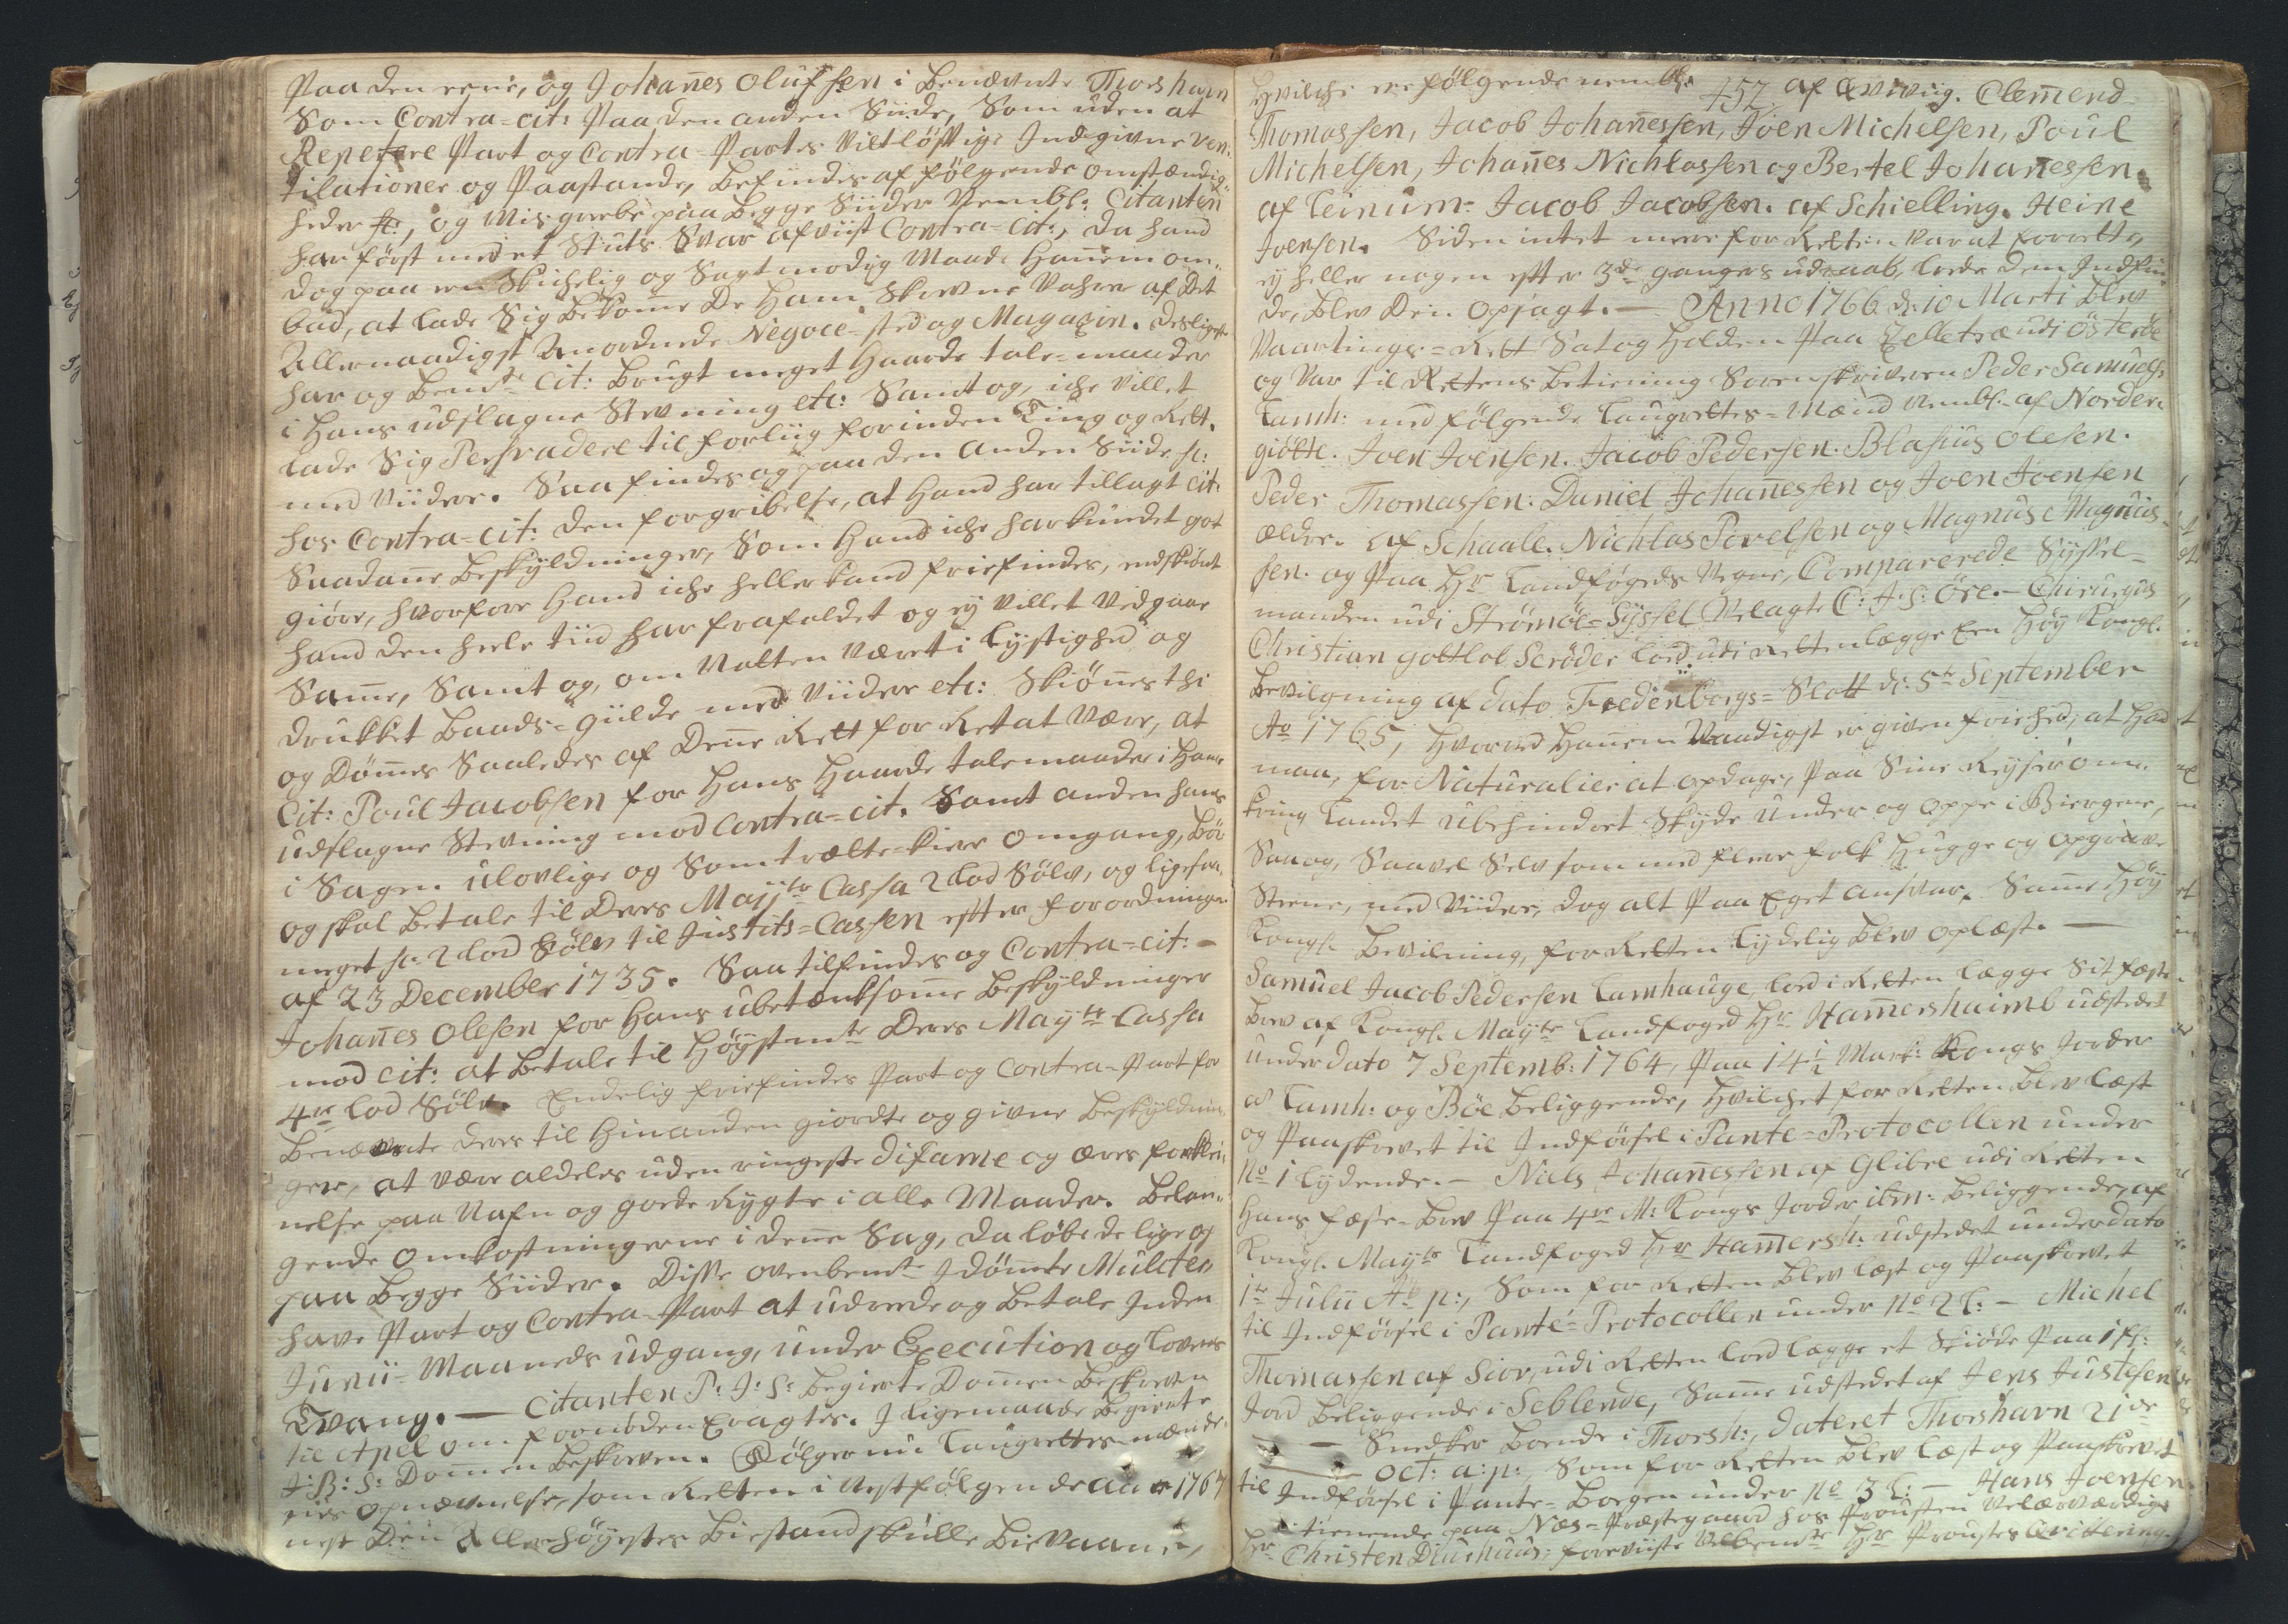 Paa den eene, og Johan̄es Olufsen i benævnte Thorshavn
Som Contra-cit: Paa den anden Siide, Som uden at
Repetere Part og Contra-Partes Vitløftige Indgivne Ven-
tilationer og Paastande, befindes af følgende omstændig-
heder sc:, og Misgreeb paa begge Siider Nembl: Citanten
har først med et Stuts Svar afviist Contra-Cit:, da hand
dog paa en Skichelig og Sagtmodig Maade han̄em om-
bad, at lade Sig bekom̄e De ham Skrevne Vahrer af Det
Allernaadigst Anordnede Negoce-sted og Magazin. desligeste
har og bemte Cit: brugt meget haarde tale-maader
i hans udslagne Stevning etc: Samt og, iche villet
lade Sig Persvadere til forliig forinden Ting og Rett.
med Viidere. Saa findes og paa den Anden Siide sc:
hos Contra-cit: den forgribelse, at hand har tillagt Cit:
Saadan̄e beskyldninger, Som hand iche har kundet got
giøre, hvorfore hand iche heller kand friefindes, endskiønt
hand den heele tiid har frafaldet og ej villet vedgaae
Sam̄e, Samt og, om Natten Været i Lystighed og
drukket baads-gilde med Viidere etc: Skiøn̄es thi
og Døm̄es Saaledes af Den̄e Rett for Ret at være, at
Cit: Poul Jacobsen for hans haarde talemaader i hans
udslagne Stevning mod Contra-cit. Samt anden hans
i Sagen ulovlige og Som trætte-kiere Omgang, bør
og skal betale til Deres Mayts Cassa 2 Lod Sølv, og ligesaa
meget sc: 2 Lod Sølv til Justits-Cassen efter forordningen
af 23 December 1735. Saa tilfindes og Contra-cit:-
Johan̄es Olesen for hans ubetænksom̄e beskyldninger
mod Cit: at betale til Høystmte Deres Mayts Cassa
4re Lod Sølv. Endelig friefindes Part og Contra-Part for
benævnte deres til hinanden giordte og givne beskyldnin-
ger, at være aldeles uden ringeste difame og æres forklei-
nelse paa Nafn og gode Rygte i alle Maader. belan-
gende Omkostningerne i den̄e Sag, da løbe de lige op
paa begge Siider. Disse ovenbemte Idømte Mulcter
have Part og Contra-Part at udreede og betale Inden
Junii-Maaneds udgang, under Execution og Lovens
Tvang. — Citanten P: J: S: begierte Dom̄en beskreven
til Apel om fornøden Eragtes. I Ligemaade begierte
J: B: S: Dom̄en beskreven. Følger nu Laugrettes-mænde-
nes Opnævnelse, som Retten i Nestfølgende Aar 1767
nest Den Allerhøyestes bistand skulle bievaane,
hvilche ere følgende nembl: 457 af Qvivig. Clem̄end
Thomassen, Jacob Johan̄essen, Joen Michelsen, Poul
Michelsen, Johan̄es Nichlassen og Bertel Johan̄essen.
af Leinum: Jacob Jacobsen. af Schielling. Heine
Joensen. Siden intet meere for Retten var at forrette,
ej heller nogen efter 3de ganges udraab, lode dem Indfin-
de, blev Den Opsagt. — Anno 1766 d: 10 Marti blev
Vaartings-Rett Sat og holden Paa Selletræ udi Østerøe
og var til Rettens betiening Sorenskriveren Peder Samuels:
Lamh: med følgende Laugrettes-Mænd nembl: af Norder-
giøtte. Joen Joensen. Jacob Pedersen. Blasius Olesen.
Peder Thomassen. Daniel Johan̄essen og Joen Joensen
ældre. af Schaale. Nichlas Povelsen og Magnus Magnus-
sen. og Paa Hr Landfogeds Vegne, Comparerede Syssel-
manden udi Strømøe-Syssel Velagte C: J: S: Øre. — Chirurgus
Christian Gottlob Scrøder lod udi Retten legge Een Høy Kongl.
bevilgning af dato Fredensborgs-Slott d: 5te September
Ao 1765, hvorved han̄em Naadigst er given friehed, at hand
maa, for Naturalier at opdage, Paa Sine Reyser om-
kring Landet ubehindret Skyde under og oppe i Biergene,
Saa og, Saavel Selv som med fleere folk hugge og opgrave
Steene, med Viidere, dog alt Paa Eget Ansvar. Sam̄e Høy
Kongl. bevilning, for Retten lydelig blev oplæst. —
Samuel Jacob Pedersen Lamhauge, lod i Retten lægge Sit fæste
brev af Kongl. Mayts Landfoged Hr Ham̄ershaimb udstædet
under dato 7 Septemb: 1764, Paa 14½ Mark: Kongs Jorder
a Lamh: og Bøe beliggende, hvilchet for Retten blev læst
og Paaskrevet til Indførsel i Pante-Protocollen under
No 1 lydende. — Niels Johan̄essen af Glibre udi Retten
hans fæste-brev Paa 4re M: Kongs Jorder ibm: beliggende, af
Kongl. Mayts Landfoged Hr Ham̄ersh: udstædet under dato
1te Julii Ao p:, Som for Retten blev læst og Paaskrevet
til Indførsel i Pante-Protocollen under No 2 L: — Michel
Thomassen af Siov, udi Retten lod lægge et Skiøde Paa 1 fl:
Jord beliggende i Seblende, Sam̄e udstedet af Jens Justesen
— Snedker boende i Thorsh:, dateret Thorshavn 21de
— Oct: a: p:, Som for Retten blev læst og Paaskrevet
til Indførsel i Pante-bogen under No 3 L: — Hans Joensen
tienende paa Næs-Præstegaard hos Prousten Velærværdige
Hr Christen Diurhuus, foreviiste Velbemte Hr Proustes Qvittering